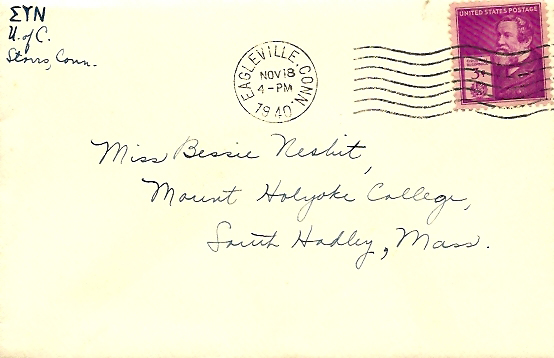 ΣΥΝ
U. of C.
Storrs, Conn.
EAGLEVILLE, CONN.
NOV 18
4 - PM
1940
UNITED STATES POSTAGE
3¢
Miss Bessie Nesbit,
Mount Holyoke College,
South Hadley, Mass.